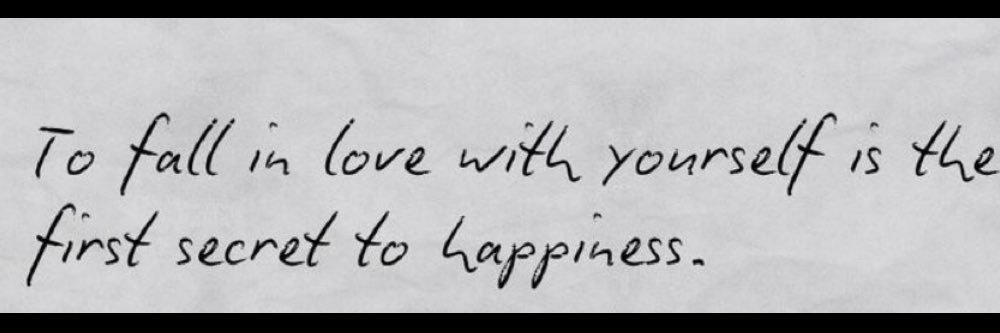 To fall in love with yourself is the
first secret to happiness.